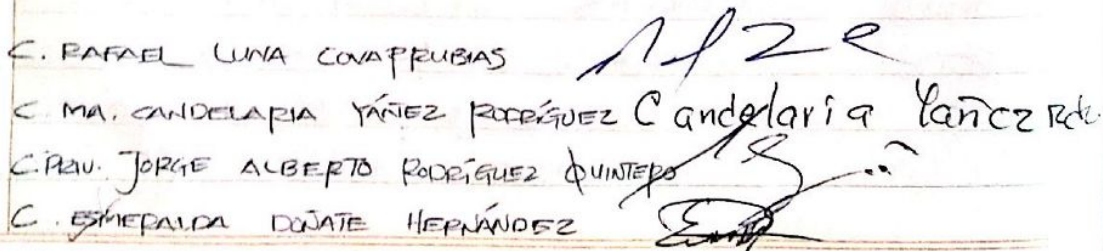 C. RAFAEL LUNA COVARRUBIAS
C MA. CANDELARIA YÁÑEZ RODRÍGUEZ Candelaria Yañez Rdz.
C. JORGE ALBERTO RODRÍGUEZ QUINTERO
C. ESMERALDA DOÑATE HERNÁNDEZ